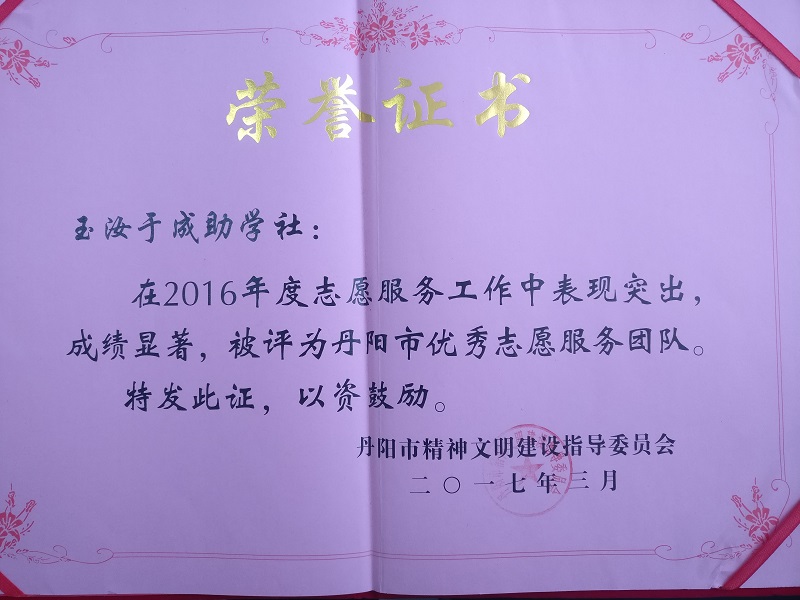 荣誉证书
玉汝于成助学社：
在2016年度志愿服务工作中表现突出，
成绩显著，被评为丹阳市优秀志愿服务团队。
特发此证，以资鼓励。
丹阳市精神文明建设指导委员会
二〇一七年三月